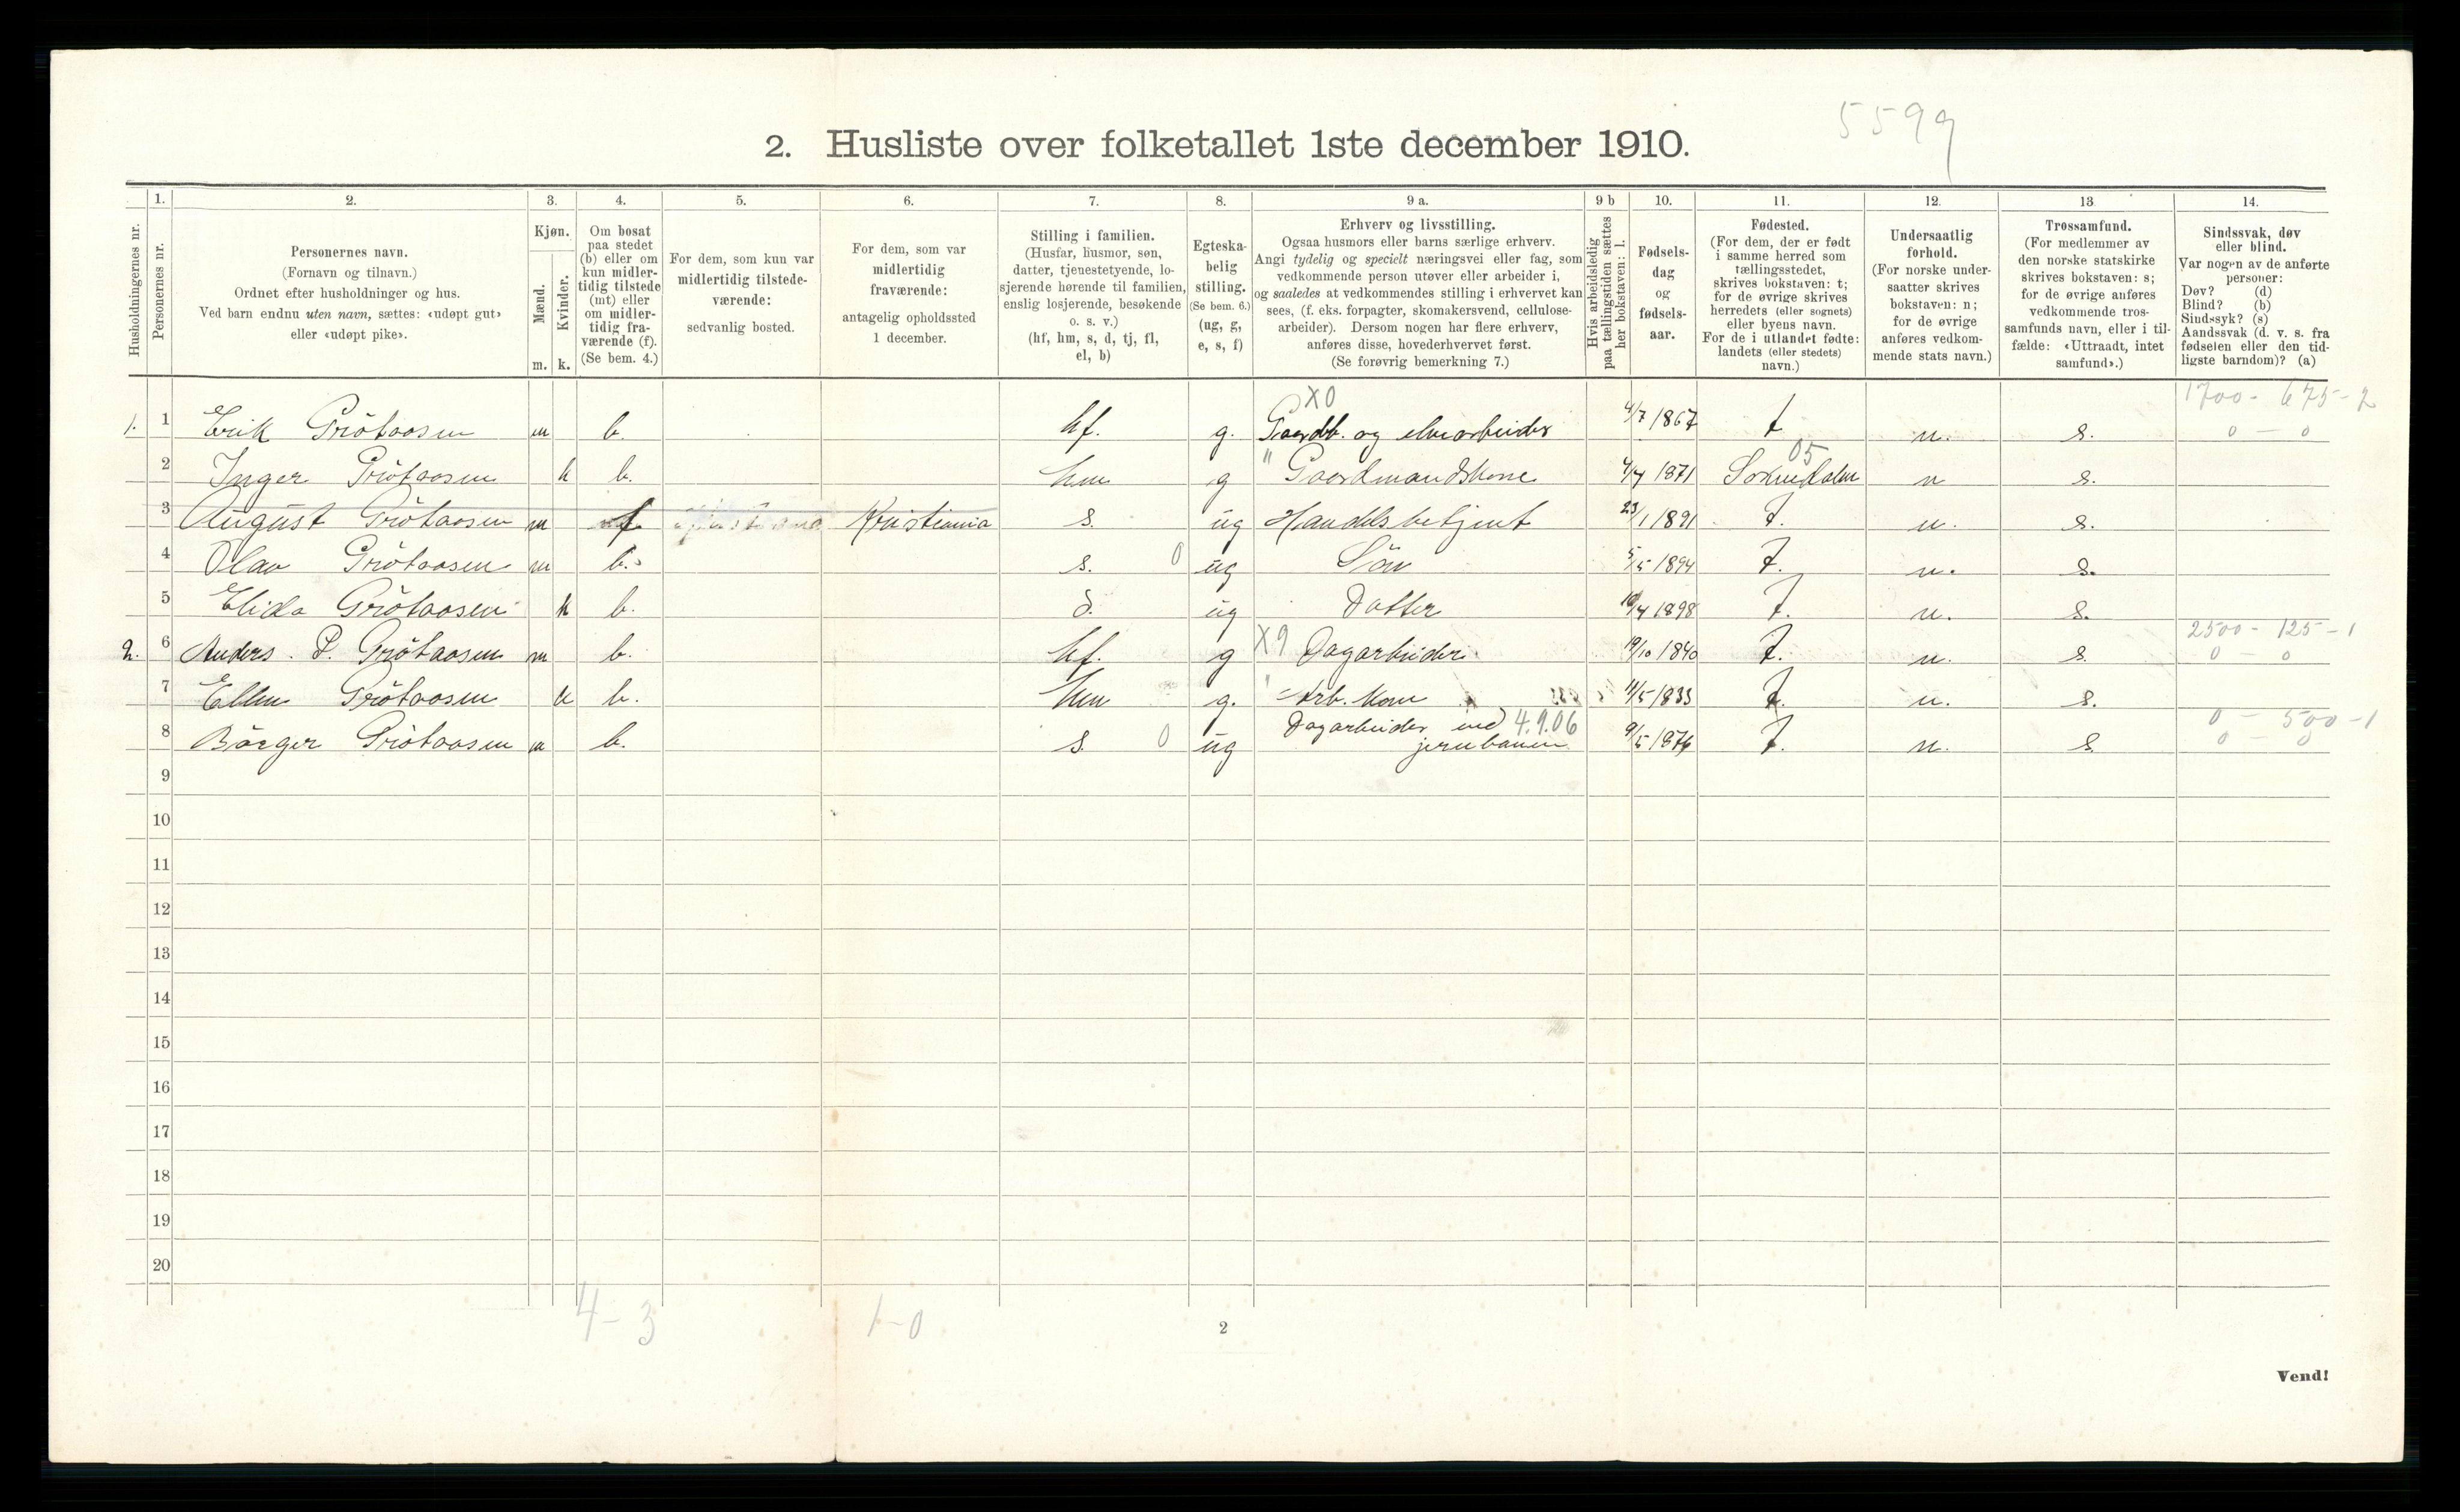 5599
2. Husliste over folketallet 1ste december 1910.
Husholdningernes nr.
1.
Personernes nr.
2.
Personernes navn.
(Fornavn og tilnavn.)
Ordnet efter husholdninger og hus.
Ved barn endnu uten navn, sættes: «udøpt gut»
eller «udøpt pike».
3.
Kjøn.
Mænd.
Kvinder.
m. k.
4.
Om bosat
paa stedet
(b) eller om
kun midler-
tidig tilstede
(mt) eller
om midler-
tidig fra-
værende (f).
(Se bem. 4.)
5.
For dem, som kun var
midlertidig tilstede-
værende:
sedvanlig bosted.
6.
For dem, som var
midlertidig
fraværende:
antagelig opholdssted
1 december.
7.
Stilling i familien.
(Husfar, husmor, søn,
datter, tjenestetyende, lo-
sjerende hørende til familien,
enslig losjerende, besøkende
o. s. v.)
(hf, hm, s, d, tj, fl,
el, b)
8.
Egteska-
belig
stilling.
(Se bem. 6.)
(ug, g,
e, s, f)
9 a.
Erhverv og livsstilling.
Ogsaa husmors eller barns særlige erhverv.
Angi tydelig og specielt næringsvei eller fag, som
vedkommende person utøver eller arbeider i,
og saaledes at vedkommendes stilling i erhvervet kan
sees, (f. eks. forpagter, skomakersvend, cellulose-
arbeider). Dersom nogen har flere erhverv,
anføres disse, hovederhvervet først.
(Se forøvrig bemerkning 7.)
9 b
Hvis arbeidsledig
paa tællingstiden sættes
her bokstaven: l.
10.
Fødsels-
dag
og
fødsels-
aar.
11.
Fødested.
(For dem, der er født
i samme herred som
tællingsstedet,
skrives bokstaven: t;
for de øvrige skrives
herredets (eller sognets)
eller byens navn.
For de i utlandet fødte:
landets (eller stedets)
navn.)
12.
Undersaatlig
forhold.
(For norske under-
saatter skrives
bokstaven: n;
for de øvrige
anføres vedkom-
mende stats navn.)
13.
Trossamfund.
(For medlemmer av
den norske statskirke
skrives bokstaven: s;
for de øvrige anføres
vedkommende tros-
samfunds navn, eller i til-
fælde: «Uttraadt, intet
samfund».)
14.
Sindssvak, døv
eller blind.
Var nogen av de anførte
personer:
Døv? (d)
Blind? (b)
Sindssyk? (s)
Aandssvak (d. v. s. fra
fødselen eller den tid-
ligste barndom)? (a)
X0 1700 - 675 - 2
1. 1 Erik Grötaasen m b. hf. g. Gaardb. og elvearbeider 4/7 1867 t n. s. 0 - 0
05
2 Inger Grötaasen k b. hm g " Gaardmandskone 4/4 1871 Soknedalen n s.
3 August Grötaasen m f Kristiania s. ug Handelsbetjent 23/1 1891 t. n. s.
4 Olav Grötaasen m b. s. 0 ug Sön 5/5 1894 t. n. s.
5 Elida Grötaasen k b. d. ug Datter 10/4 1898 t. n. s.
2500 - 125 - 1
2. 6 Anders P. Grötaasen m b. hf. g X9 Dagarbeider 19/10 1840 t. n. s. 0 - 0
7 Ellen Grötaasen k b. hm g. Arb. kone 11/5 1833 t. n. s.
Dagarbeider ved 4.9.06 0 - 500 - 1
8 Börger Grötaasen m b. s. 0 ug jernbanen 9/5 1876 t. n. s. 0 - 0
9
10
11
12
13
14
15
16
17
18
19
20
4 - 3 1 - 0
2
Vend!